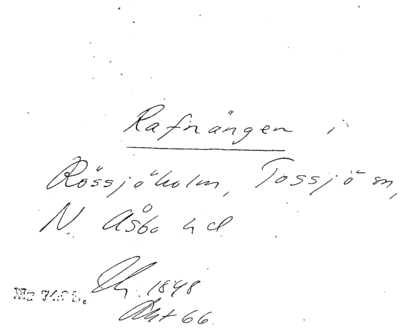 Rafnängen i
Rössjöholm, Tossjö sn,
N. Åsbo hd
1848
66.